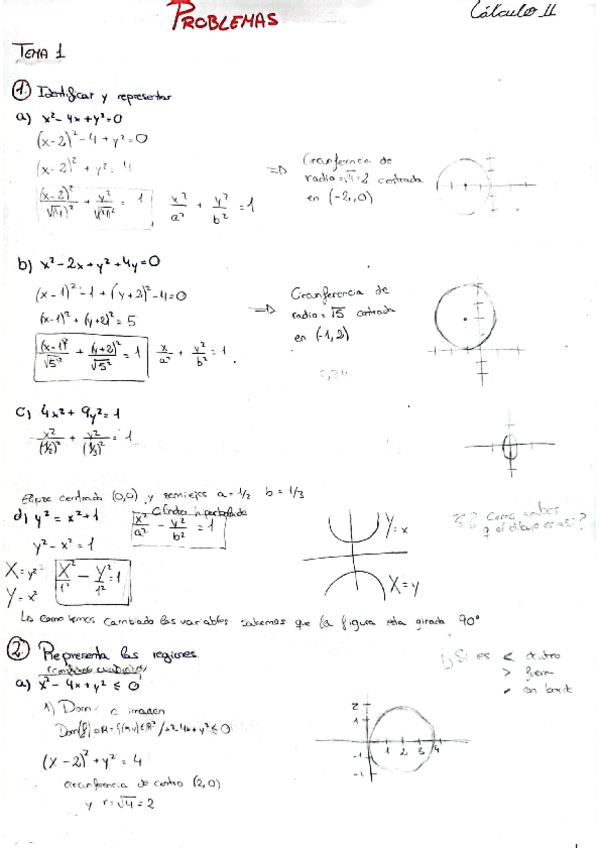 PROBLEMAS
Cálculo II
TEMA 1
1. Identificar y representar
a) x²-4x+y²=0
(x-2)²-4+y²=0
(x-2)² + y² = 4
(x-2)²/(√4)² + y²/(√4)² = 1   x²/a² + y²/b² = 1
=> Circunferencia de
radio=√4=2 centrada
en (-2,0)
b) x²-2x+y²+4y=0
(x-1)²-1+(y+2)²-4=0
(x-1)²+(y+2)²=5
(x-1)²/√5² + (y+2)²/√5² = 1   x/a² + y²/b² = 1
=> Circunferencia de
radio=√5 centrada
en (-1,2)
c) 4x²+9y²=1
x²/(1/2)² + y²/(1/3)² = 1
Elipse centrada (0,0) y semiejes a=1/2 b=1/3
d) y²=x²+1
x²/a² - y²/b² = 1
y²-x²=1
X=y²
Y=x²
X²/1² - Y²/1² = 1
Y=x
X=y
¿? Como sabes
q el dibujo es así?
Lo como hemos cambiado las variables sabemos que la figura esta girada 90°
2. Representa las regiones.
a) x²-4x+y² ≤ 0
1) Dom e imagen
(x-2)²+y²=4
circunferencia de centro (2,0)
y r=√4=2
1) Si es < dentro
> fuera
2
1
-1
1 2 3 4